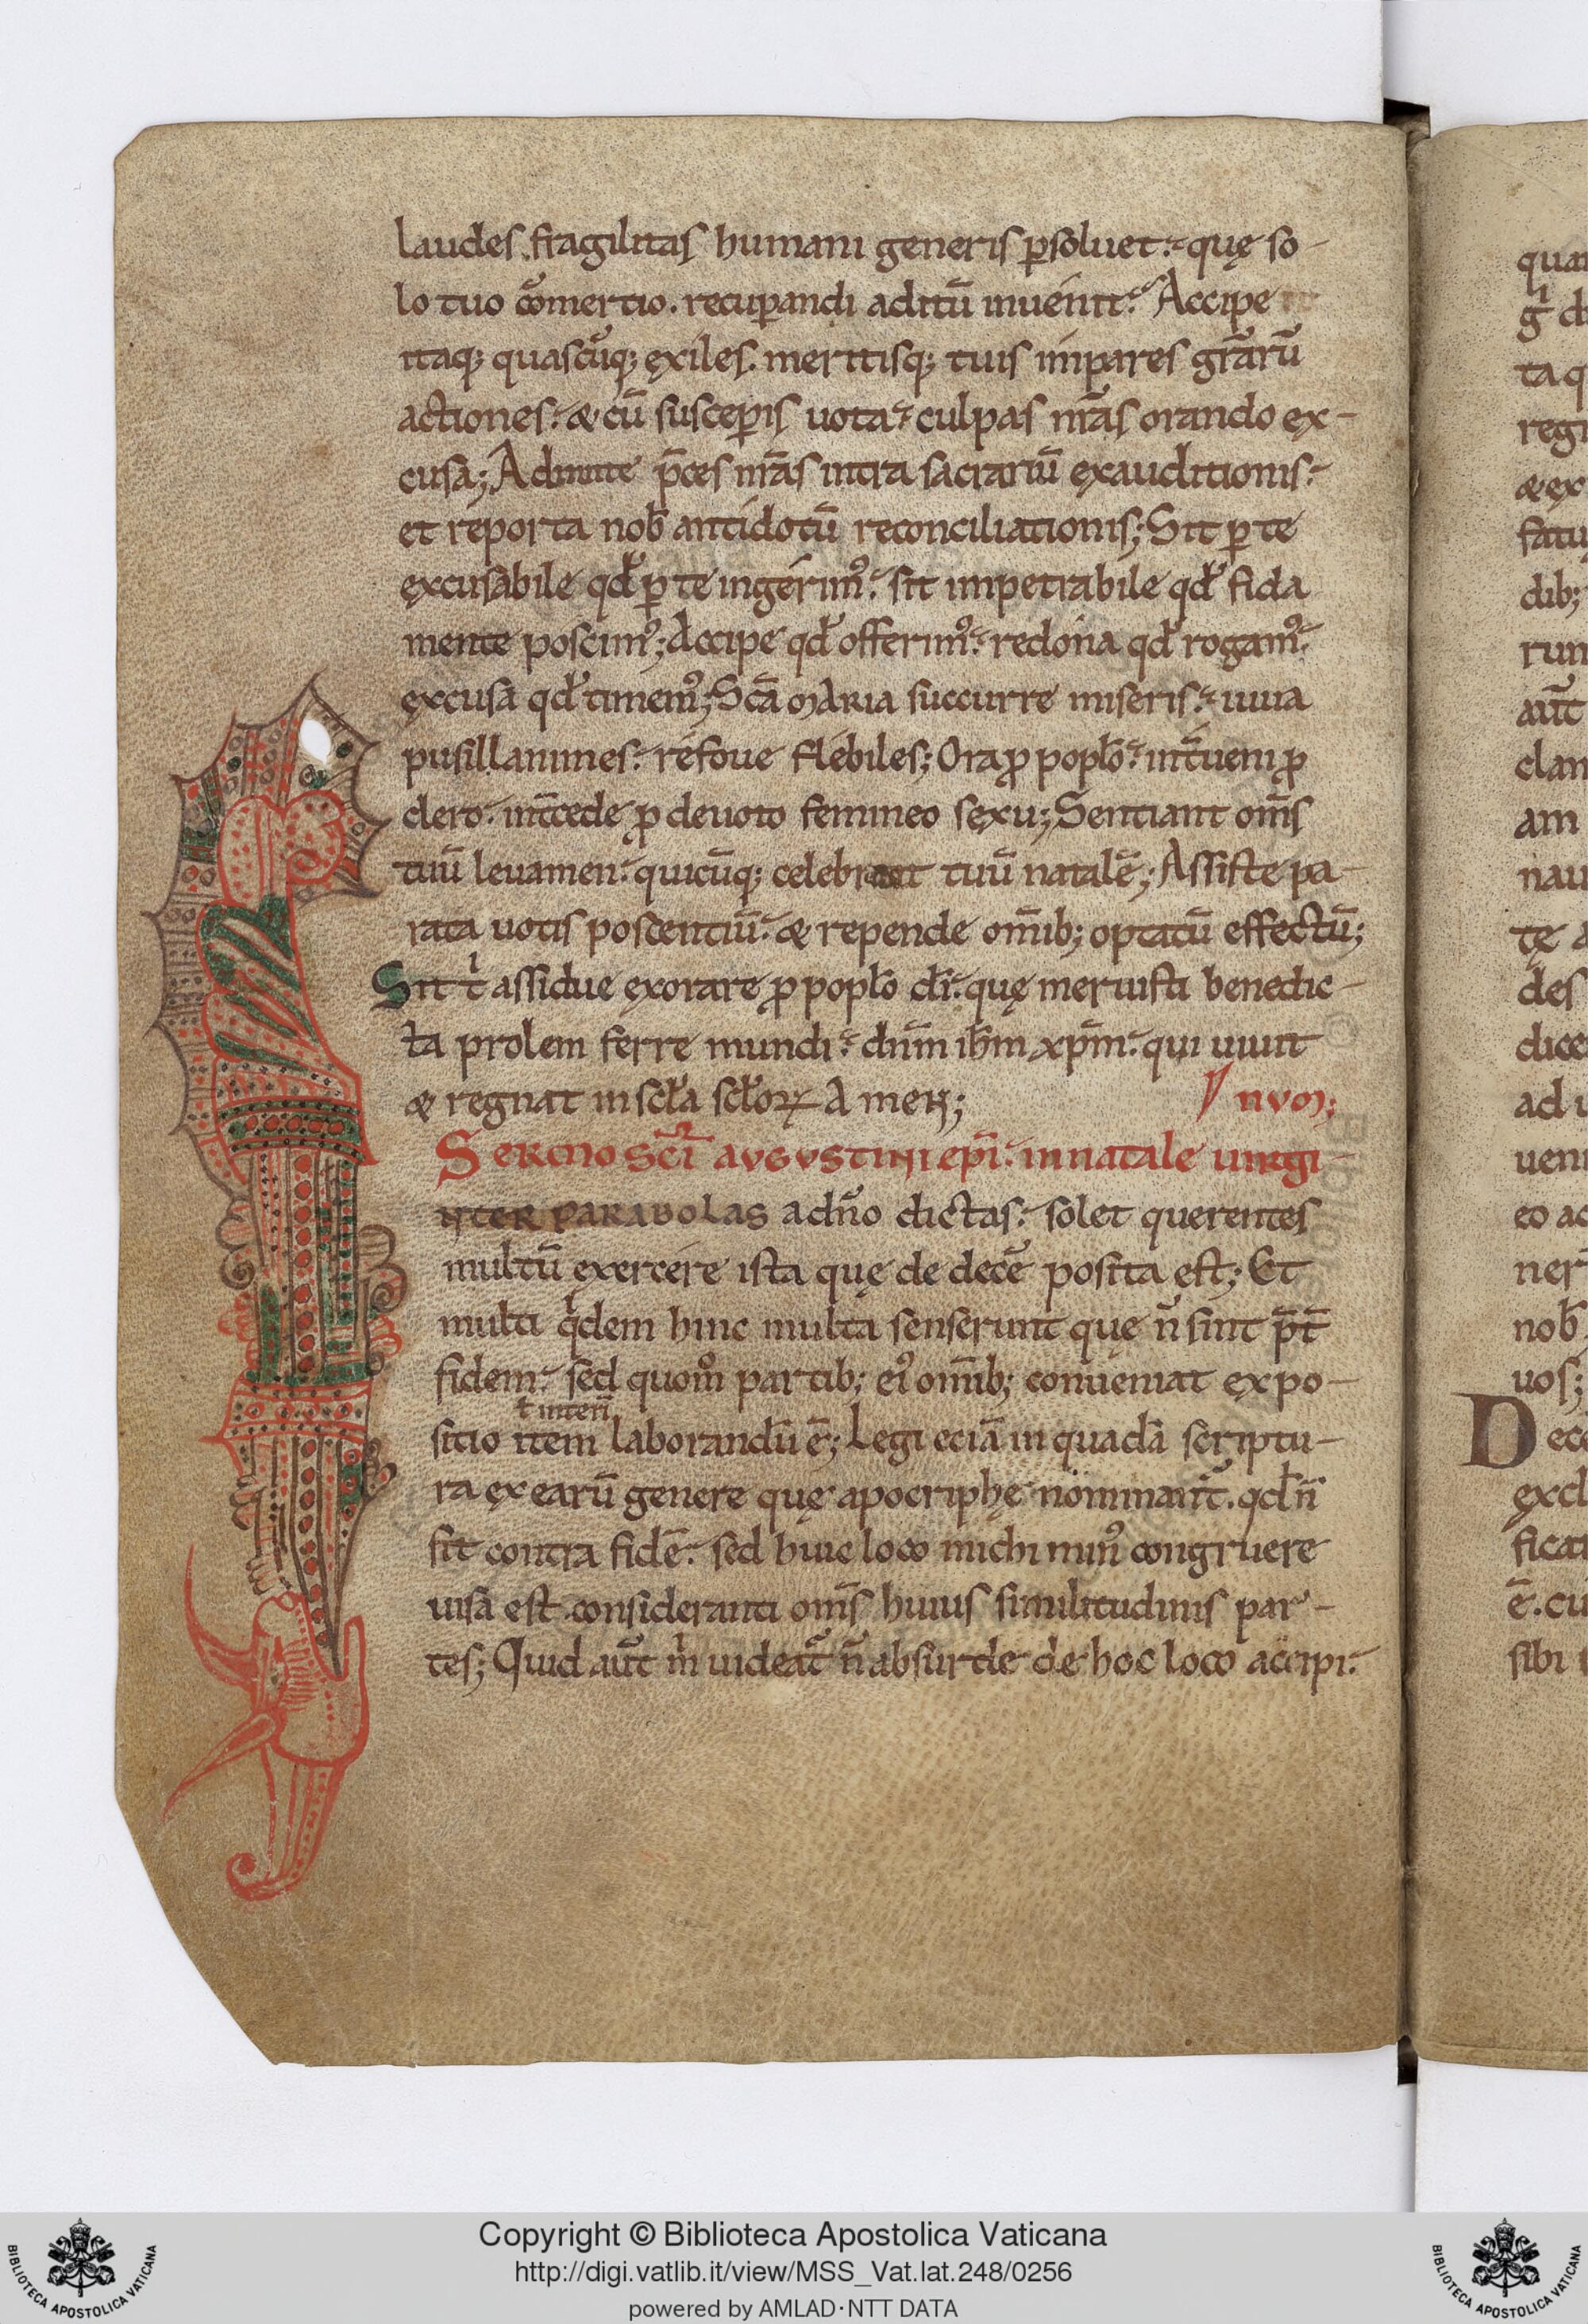 laudes. fragilitas humani generis p̱soluet. quę so-
lo tuo cõmertio. recup̱andi aditũ inuenit. Accipe
itaq; quascũq; exiles. meritisq; tuis impares gr̃arũ
actiones. & cũ suscep̱is uota. culpas nr̃as orando ex-
cusa; Admitte p̄ces nr̃as intra sacrariũ exauditionis.
et reporta nob̄ antidotũ reconciliationis; Sit p̱ te
excusabile qđ p̱ te ingerim᾽. sit impetrabile qđ fida
mente poscim᾽; Accipe qđ offerim᾽. redona qđ rogam᾽.
excusa qđ timem᾽; Sc̄a MARIA succurre miseris. iuua
pusillanimes. refoue flebiles; Ora ꝓ popl̄o. int̄ueni ꝓ
clero. int̄cede ꝓ deuoto femineo sexu; Sentiant om̄s
tuũ leuamen. quicũq; celebrant tuũ natalē; Assiste pa-
rata uotis poscentiũ. & repende om̄ib; optatũ effectũ;
Sit tⁱ assidue exorare ꝓ popl̄o dī. quę meruisti benedic-
ta prolem ferre mundi. dn̄m ih̄m xp̄m. qui uiuit
& regnat in scl̄a scl̄oꝝ AMEN;
NUM;
SERMO SC̄I AUGUSTINI ep̄i. in natale uirgi-
NTER PARABOLAS a dn̄o dictas. solet querentes
multũ exercere ista quę de decē posita est; Et
multi qⁱdem hinc multa senserunt quę n̄ sint p̄t
fidem. sed quom᾽ partib; ei᾽ om̄ib; conueniat expo-
ł interī
sitio item laborandũ ē; Legi eciā in quadā scriptu-
ra ex earũ genere quę apocriphę nominant̃. qđ n̄
sit contra fidē. sed huic loco michi min᾽ congruere
uisa est consideranti om̄s huius similitudinis par-
tes; Quid aũt mⁱ uideat̃ n̄ absurde de hoc loco accipi.
qua
ta q
& ex
fatu
dib;
run
aũt
clam
am
nau
tę
des
dice
ad u
ueni
eo ac
ner
nob̄
uos;
Dece
excl
ficat
ē. cu
sibi
Copyright © Biblioteca Apostolica Vaticana
http://digi.vatlib.it/view/MSS_Vat.lat.248/0256
powered by AMLAD·NTT DATA
BIBLIOTECA APOSTOLICA VATICANA
BIBLIOTECA APOSTOLICA VATICANA